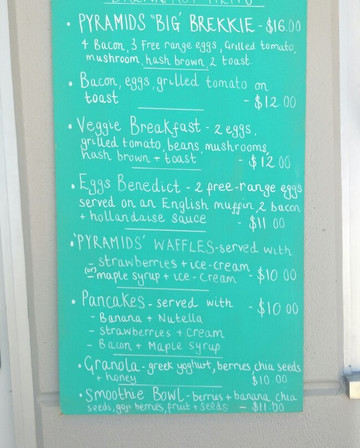 BREAKFAST MENU
• PYRAMIDS "BIG" BREKKIE - $16.00
4 Bacon, 3 Free range eggs, Grilled tomato,
mushroom, hash brown, 2 toast
• Bacon, eggs, grilled tomato on
toast - $12.00
• Veggie Breakfast - 2 eggs,
grilled tomato, beans, mushrooms,
hash brown + toast - $12.00
• Eggs Benedict - 2 free-range eggs
served on an English muffin, 2 bacon
+ hollandaise sauce - $11.00
• 'PYRAMIDS' WAFFLES - served with
- strawberries + ice-cream
(or) - maple syrup + ice-cream - $10.00
• Pancakes - served with - $10.00
- Banana + Nutella
- Strawberries + Cream
- Bacon + Maple Syrup
• Granola - greek yoghurt, berries, chia seeds
+ honey $10.00
• Smoothie Bowl - berries + banana, chia
seeds, goji berries, fruit + seeds - $11.00